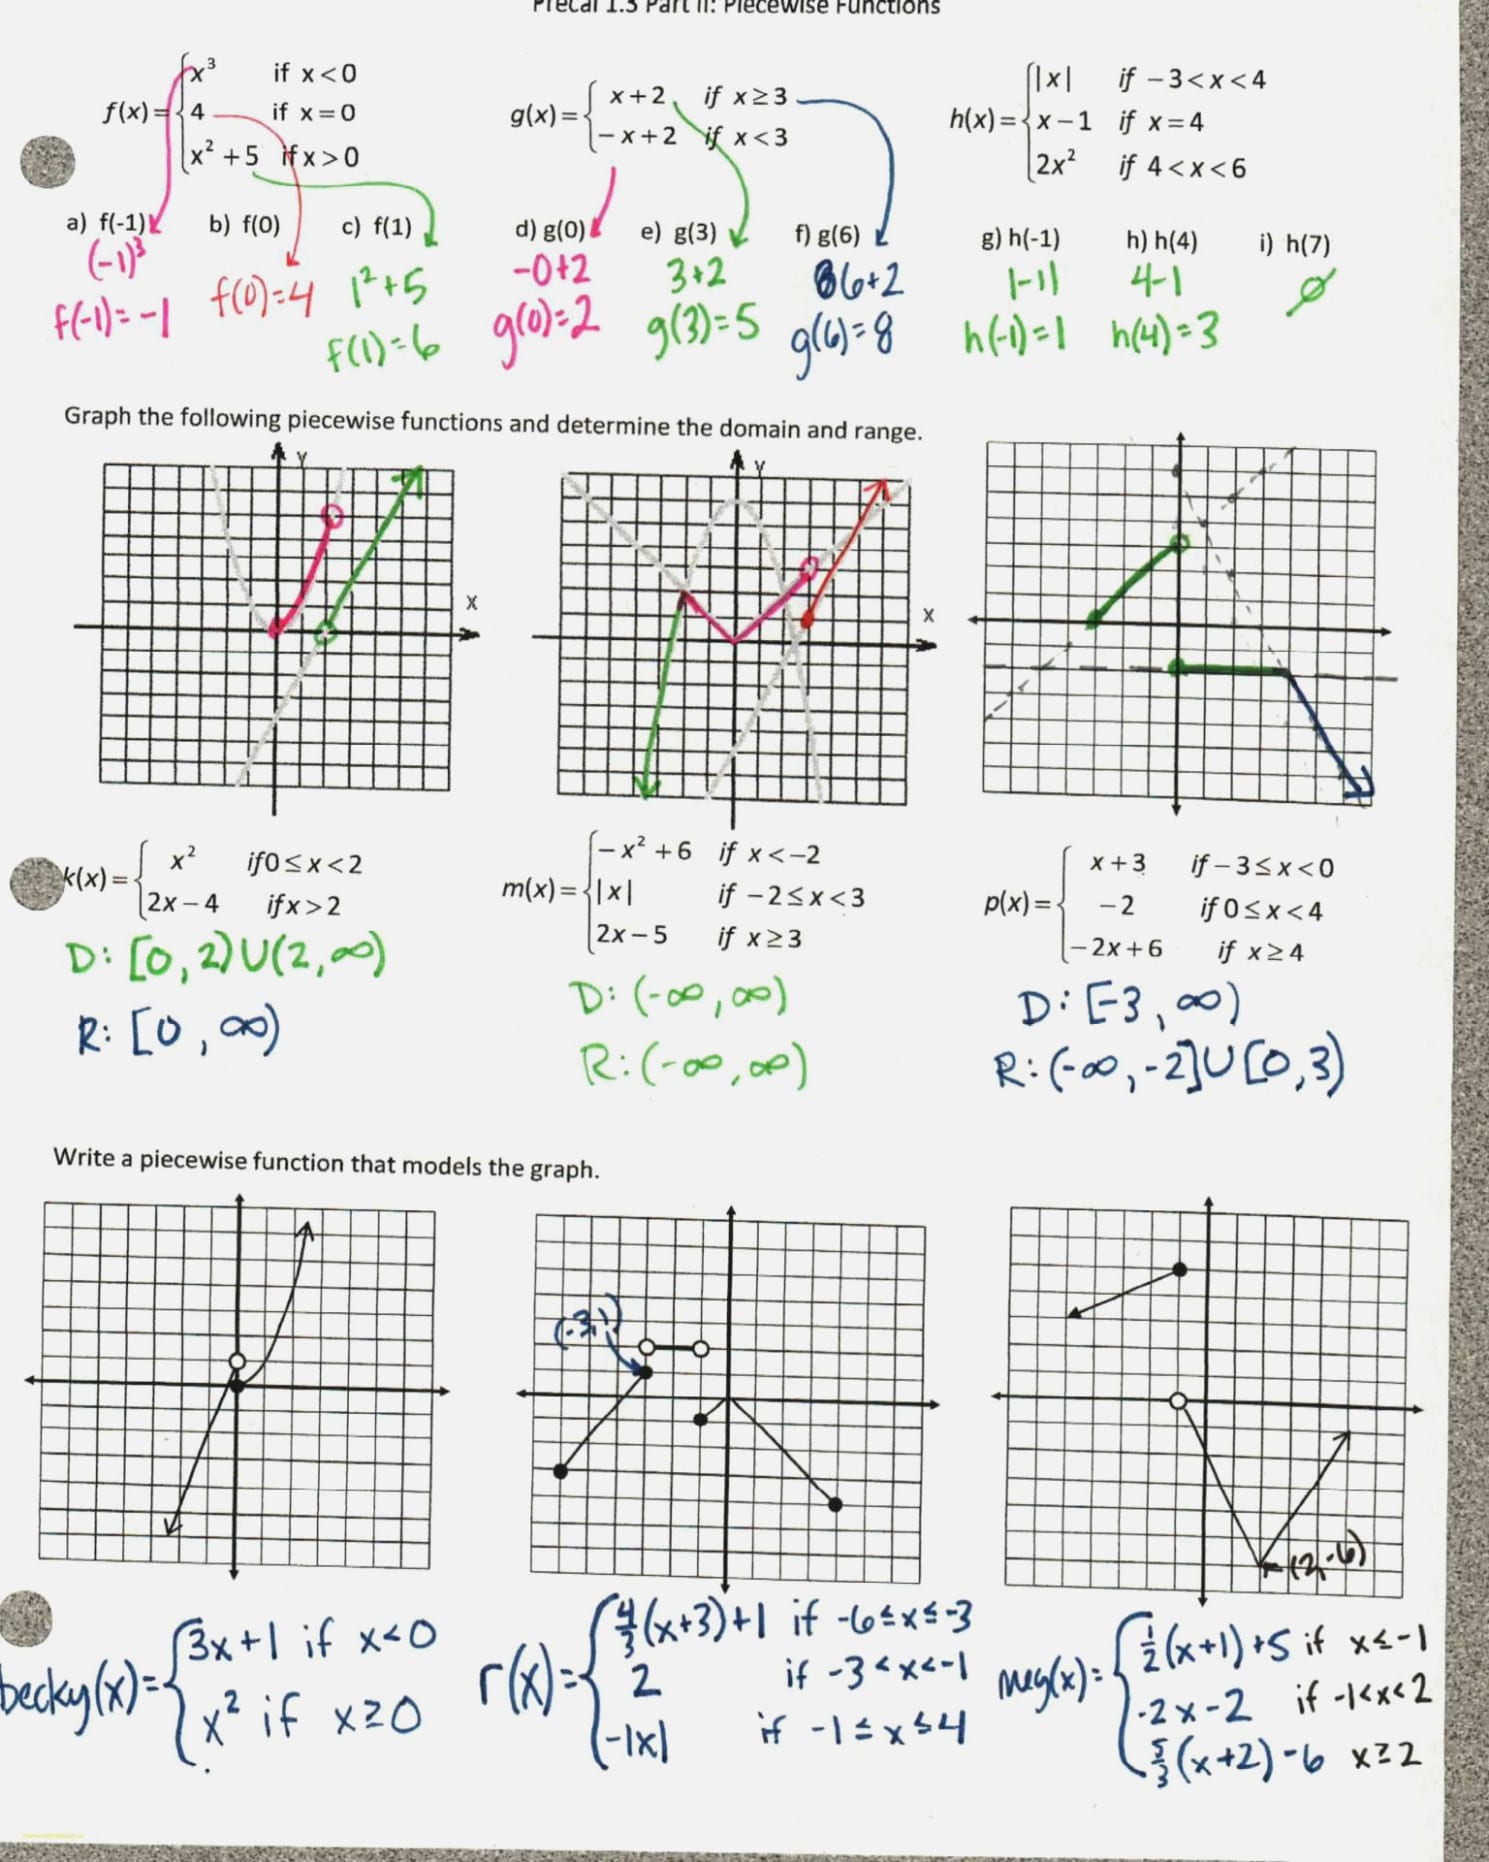 Precal 1.3 Part II: Piecewise Functions
f(x) = { x³ if x < 0
4 if x = 0
x² + 5 if x > 0
g(x) = { x + 2 if x ≥ 3
− x + 2 if x < 3
h(x) = { |x| if − 3 < x < 4
x − 1 if x = 4
2x² if 4 < x < 6
a) f(-1) b) f(0) c) f(1) d) g(0) e) g(3) f) g(6) g) h(-1) h) h(4) i) h(7)
(-1)³ f(0)=4 1²+5 -0+2 3+2 6+2 |-1| 4-1 ∅
f(-1)=-1 f(1)=6 g(0)=2 g(3)=5 g(6)=8 h(-1)=1 h(4)=3
Graph the following piecewise functions and determine the domain and range.
y
x
y
x
k(x) = { x² if 0 ≤ x < 2
2x − 4 if x > 2
D: [0, 2) U (2, ∞)
R: [0, ∞)
m(x) = { − x² + 6 if x < −2
|x| if − 2 ≤ x < 3
2x − 5 if x ≥ 3
D: (-∞, ∞)
R: (-∞, ∞)
p(x) = { x + 3 if − 3 ≤ x < 0
− 2 if 0 ≤ x < 4
− 2x + 6 if x ≥ 4
D: [-3, ∞)
R: (-∞, -2] U [0, 3)
Write a piecewise function that models the graph.
(-3,1)
(2,-6)
becky(x) = { 3x+1 if x<0
x² if x≥0
r(x) = { 4/3(x+3)+1 if -6≤x≤-3
2 if -3<x<-1
-|x| if -1≤x≤4
meg(x) = { 1/2(x+1)+5 if x≤-1
-2x-2 if -1<x<2
5/3(x+2)-6 x≥2